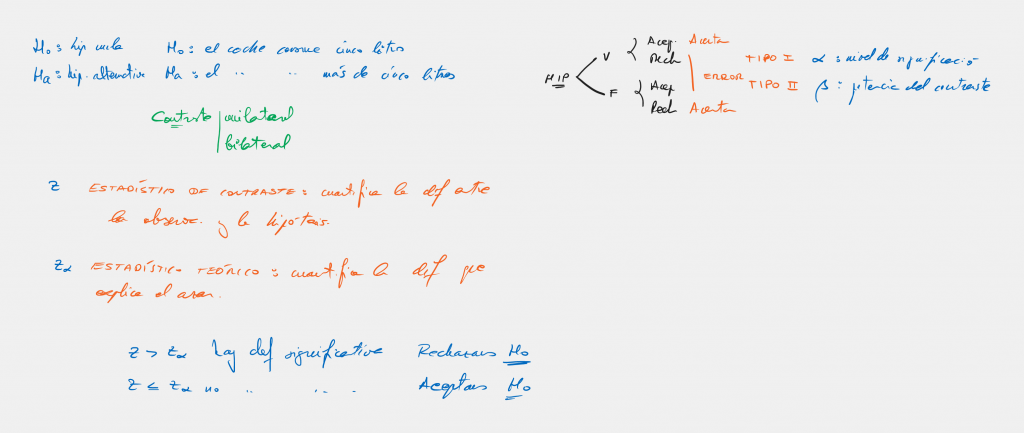 H₀ : hip nula H₀ : el coche consume cinco litros
Ha : hip. alternativa Ha : el " " más de cinco litros
Contraste | unilateral
bilateral
Z ESTADÍSTICO DE CONTRASTE : cuantifica la dif entre
lo observ. y la hipótesis.
Zα ESTADÍSTICO TEÓRICO : cuantifica la dif que
explica el azar.
Z > Zα hay dif significativa Rechazamos H₀
Z ≤ Zα no " " Aceptamos H₀
HIP
V
Acep. Acierta
Rech
ERROR
TIPO I α : nivel de significación
F
Acep
TIPO II β : potencia del contraste
Rech Acierta